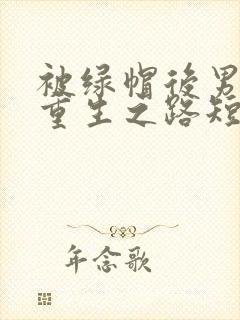 被绿帽后男
重生之路短
年念歌